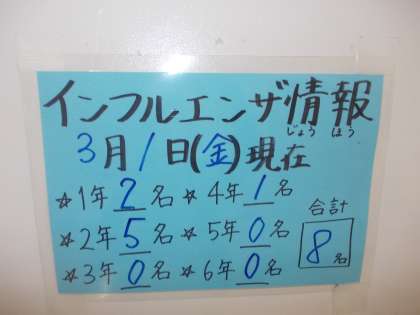 インフルエンザ情報
じょう ほう
3月1日(金)現在
☆1年2名 ☆4年1名
☆2年5名 ☆5年0名
☆3年0名 ☆6年0名
合計
8名